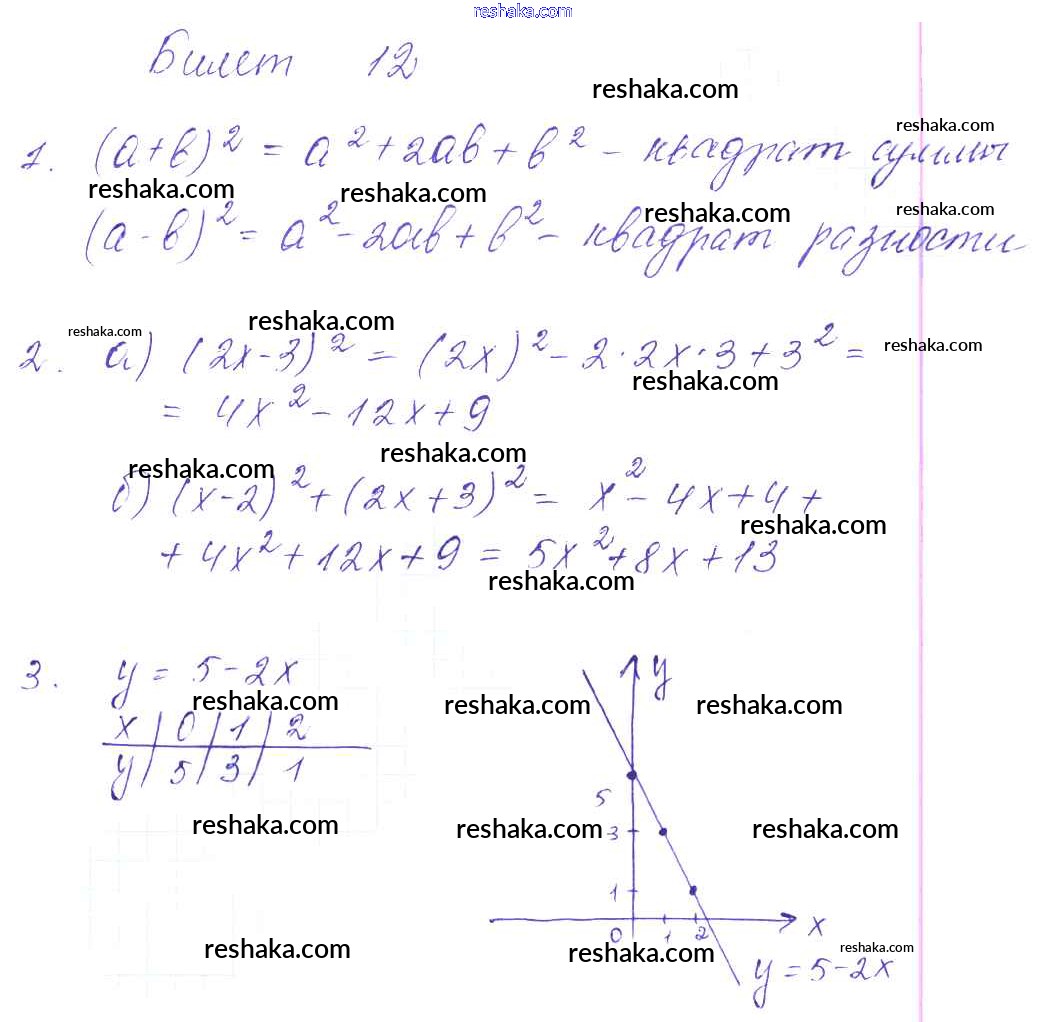 reshaka.com
Билет 12
reshaka.com
reshaka.com
1. (a+b)² = a² + 2ab + b² - квадрат суммы
reshaka.com reshaka.com
reshaka.com reshaka.com
(a-b)² = a² - 2ab + b² - квадрат разности
reshaka.com reshaka.com
2. а) (2x-3)² = (2x)² - 2·2x·3 + 3² =
reshaka.com reshaka.com
= 4x² - 12x + 9
reshaka.com reshaka.com
б) (x-2)² + (2x+3)² = x² - 4x + 4 +
reshaka.com
+ 4x² + 12x + 9 = 5x² + 8x + 13
reshaka.com
3. y = 5-2x
reshaka.com reshaka.com reshaka.com
x | 0 | 1 | 2
y | 5 | 3 | 1
y
5
3
1
0 1 2 x
reshaka.com reshaka.com reshaka.com
reshaka.com reshaka.com reshaka.com
y = 5-2x